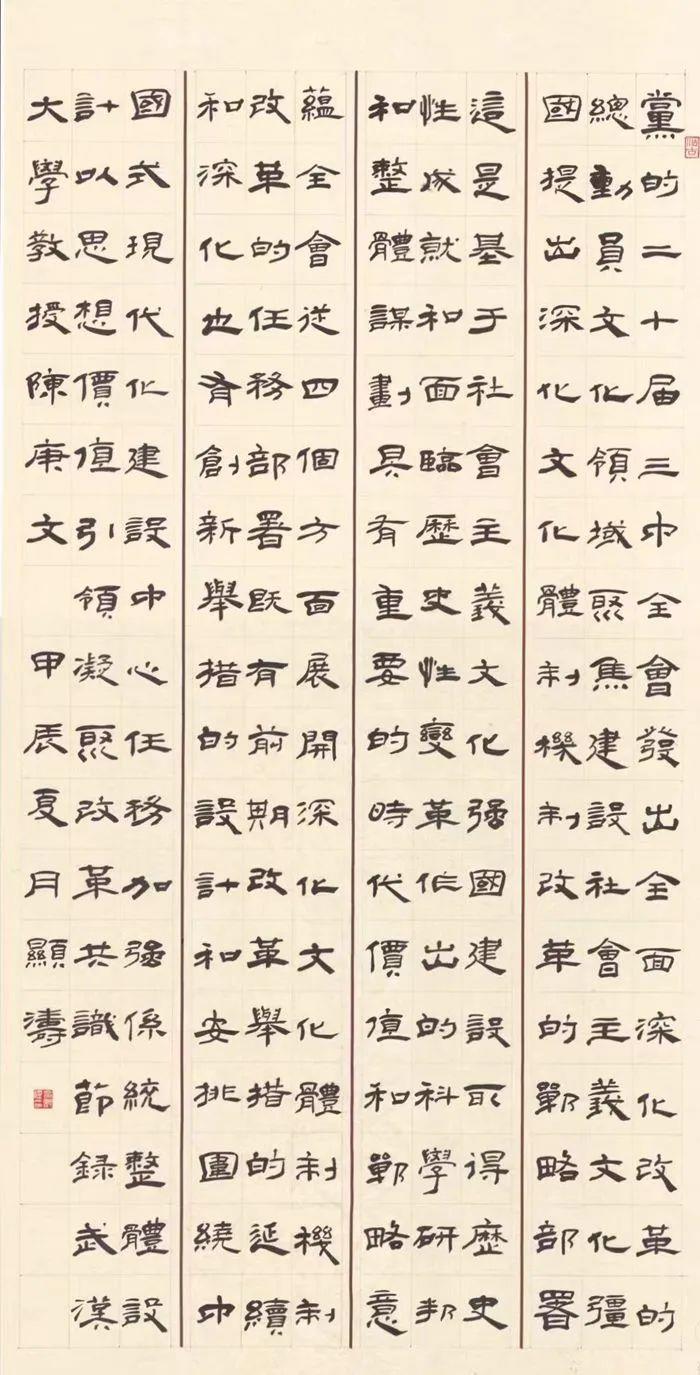 黨的二十届三中全會發出全面深化改革的
總動員文化領域聚焦建設社會主義文化彊
國提出深化文化體制機制改革的戰略部署
這是基于社會主義文化强國建設取得歷史
性成就和面臨歷史性變革作出的科學研判
和整體謀劃具有重要的時代價值和戰略意
蘊全會從四個方面展開深化文化體制機制
改革的任務部署既有前期改革舉措的延續
和深化也有創新舉措的設計和安排圍繞中
國式現代化建設中心任務加强係統整體設
計以思想價值引領凝聚改革共識節録武漢
大學教授陳庚文 甲辰夏月顯濤